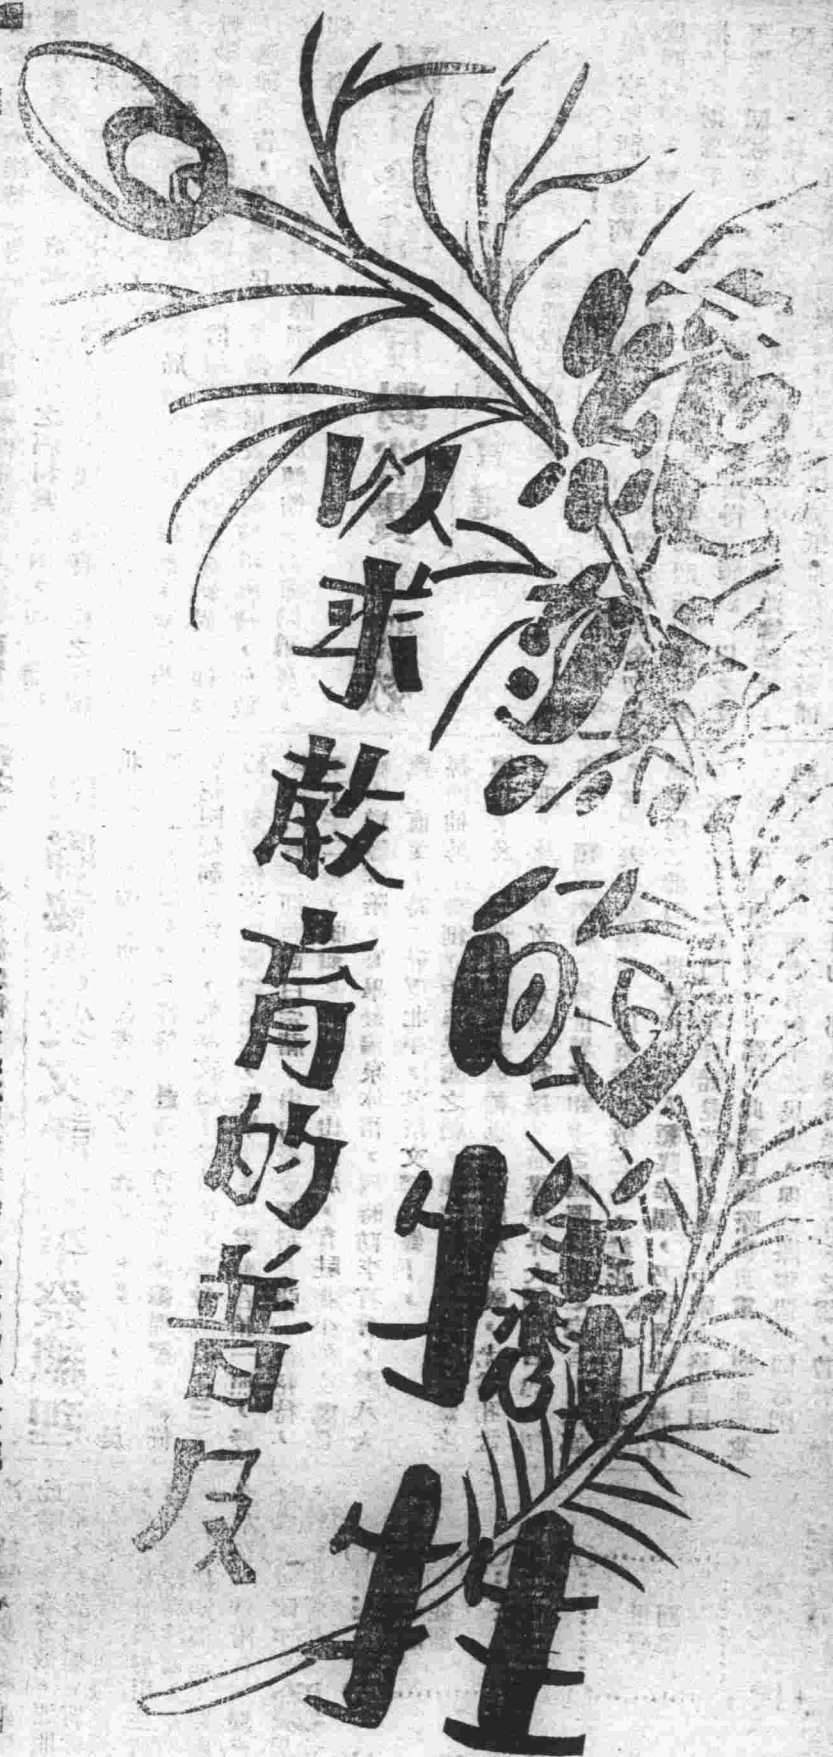 的犧牲
以求教育的普及